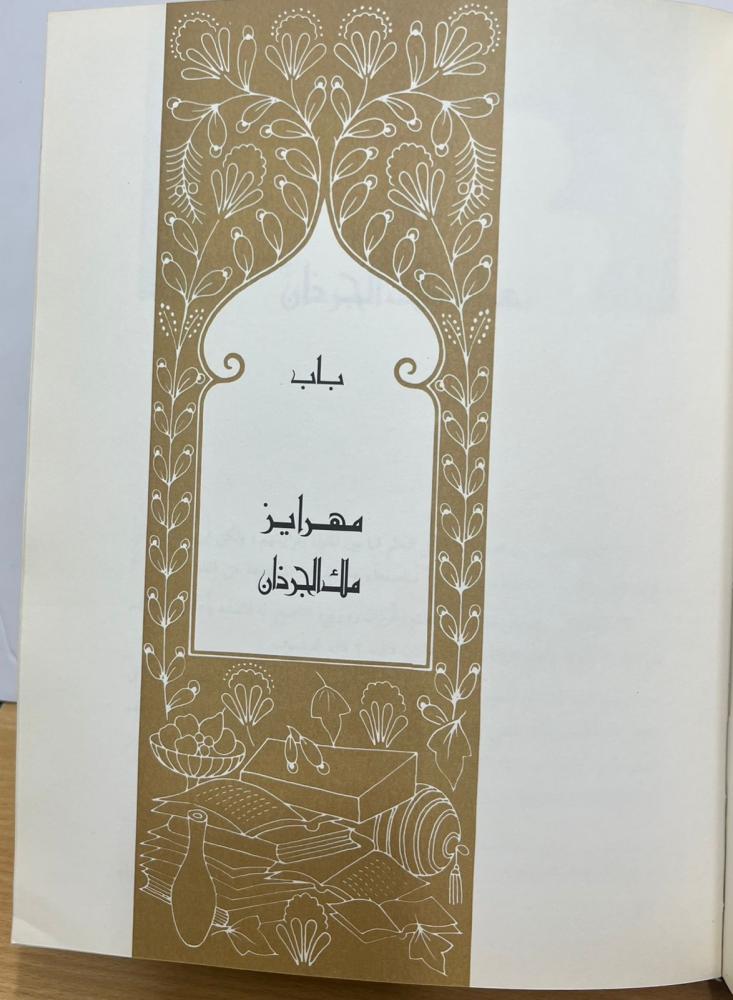 باب
مهرايز
ملك الجرذان